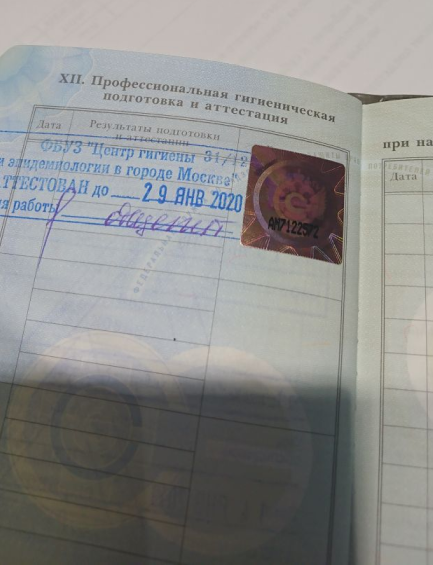 XII. Профессиональная гигиеническая
подготовка и аттестация
Дата
Результаты подготовки
и аттестации
ФБУЗ "Центр гигиены 31/12
и эпидемиологии в городе Москве"
АТТЕСТОВАН до 29 ЯНВ 2020
я работы
при на
Дата